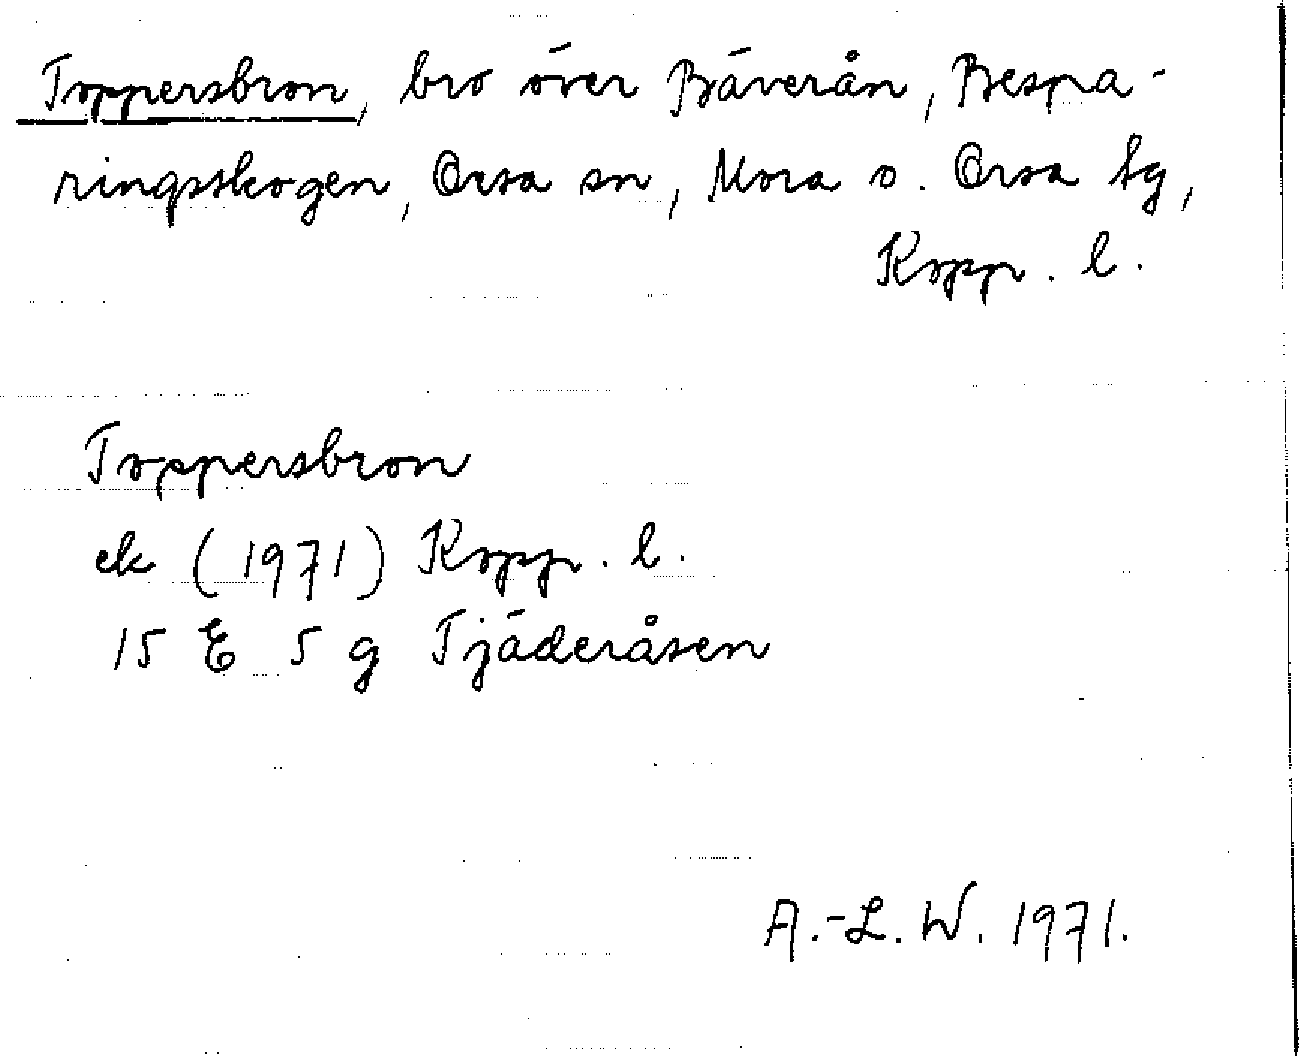 Toppersbron, bro över Bäverån, Bespa-
ringsskogen, Orsa sn, Mora o. Orsa tg,
Kopp. l.
Toppersbron
ek (1971) Kopp. l.
15 E 5 g Tjäderåsen
A.-L. W. 1971.